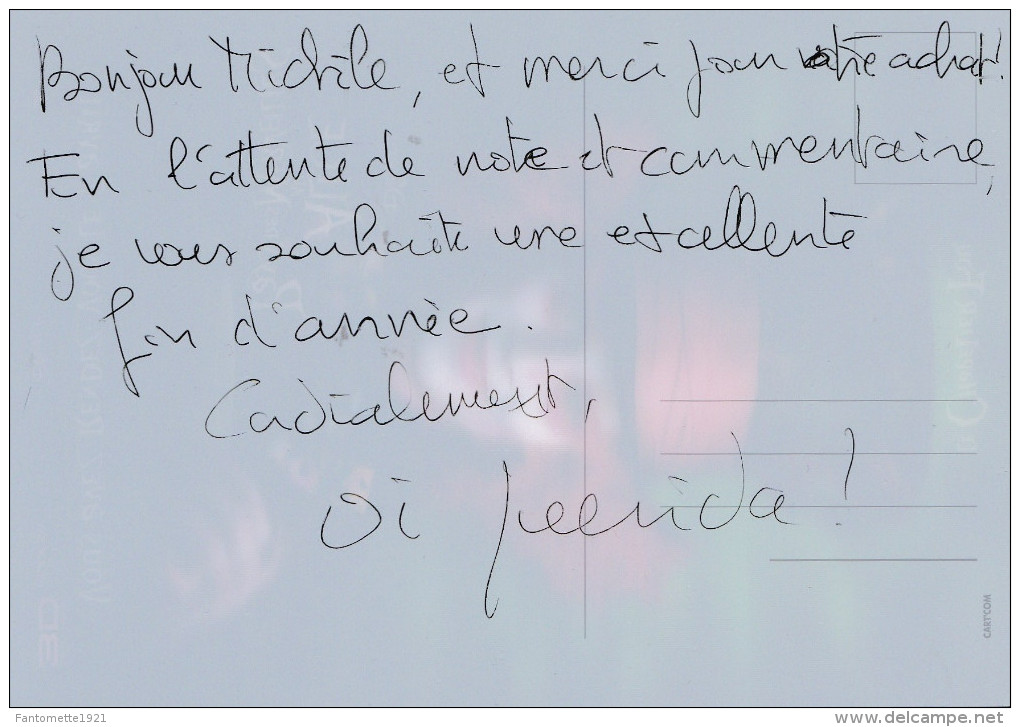 Bonjour Michèle, et merci pour votre achat!
En l'attente de note et commentaire,
je vous souhaite une excellente
fin d'année.
Cordialement,
oi !
CART'COM
Fantomette1921
www.delcampe.net